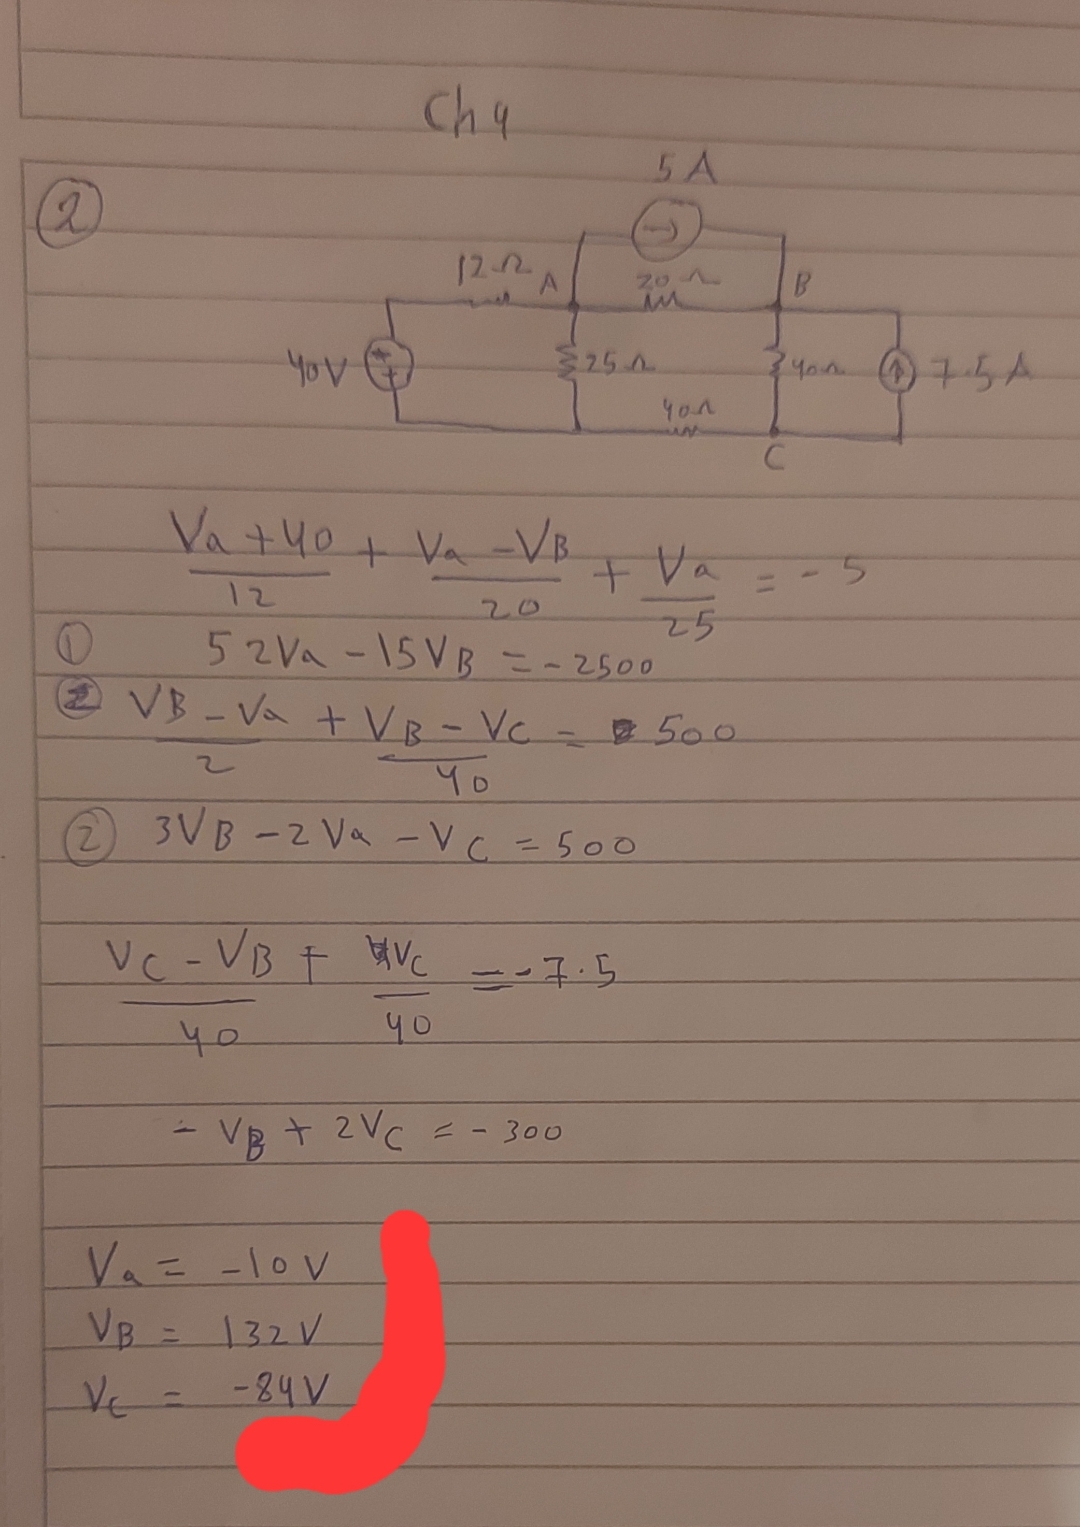 Ch 4
5 A
②
12Ω A 20Ω B
40V 25Ω 40Ω 7.5 A
40Ω
C
Va + 40 + Va - VB + Va = - 5
12 20 25
① 52Va - 15VB = - 2500
② VB - Va + VB - VC = 500
2 40
② 3VB - 2Va - VC = 500
VC - VB + VC = - 7.5
40 40
- VB + 2VC = - 300
Va = -10V
VB = 132V
VC = -84V